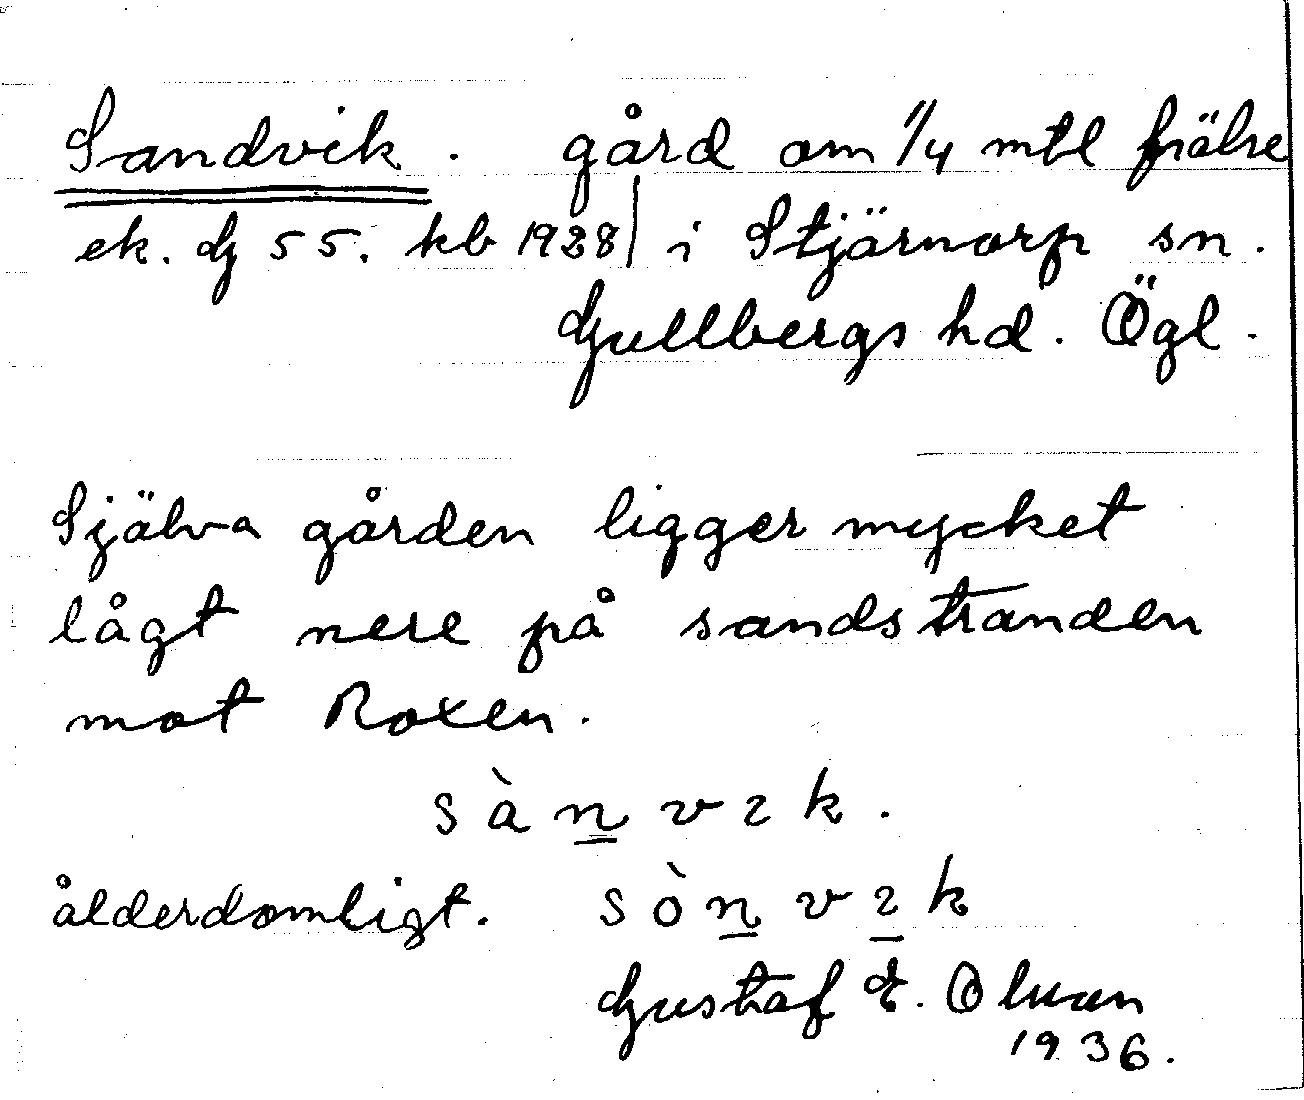 Sandvik. gård om 1/4 mtl frälse
ek. bl 55. kb 1928| i Stjärnorp sn.
Gullbergs hd. Ögl.
Själva gården ligger mycket
lågt nere på sandstranden
mot Roxen.
sà n v ɩ k.
ålderdomligt. sò n v ɩ k
Gustaf E. Olsson
1936.